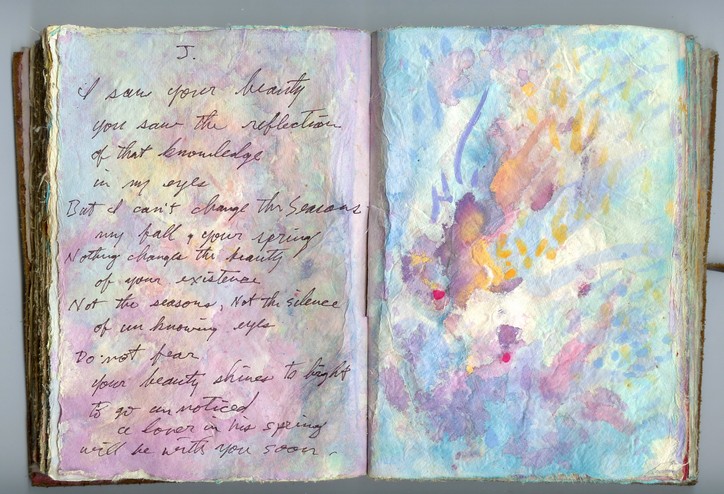 J.
I saw your beauty
you saw the reflection
of that knowledge
in my eyes
But I can't change the Seasons
my fall & your spring
Nothing changes the beauty
of your existence
Not the seasons, Not the silence
of un knowing eyes
Do not fear
your beauty shines to bright
to go unnoticed
a lover in his spring
will be with you soon -